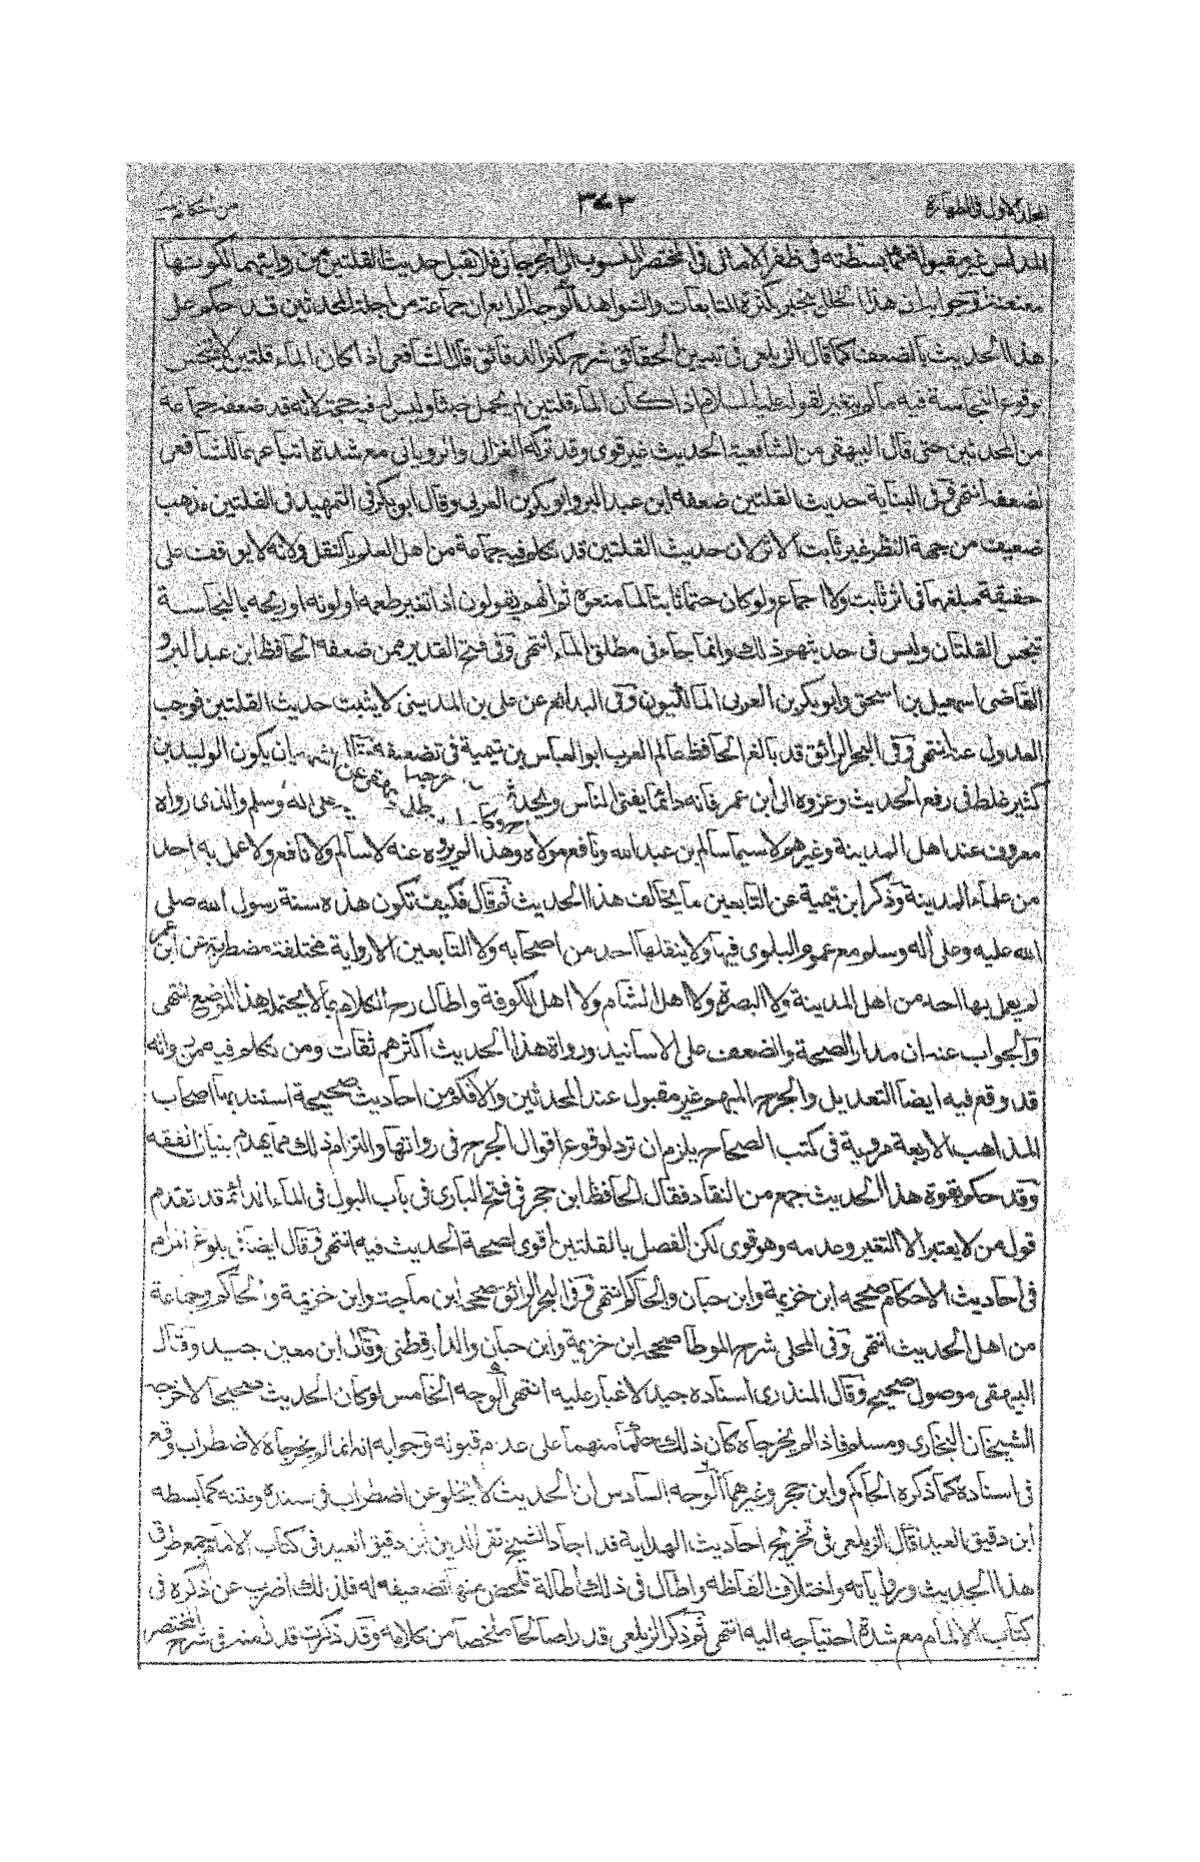 المجلد الاول في الطهارة
٣٧٣
من احكام
المدلس غير مقبولة كما بسطته في ظفر الاماني في المختصر المنسوب الى الجرجاني فلا تقبل حديث القلتين من روايتهما لكونها
معنعنة وجوابه ان هذا الخلل ينجبر بكثرة المتابعات والشواهد الوجه الرابع ان جماعة من اجلة المحدثين قد حكموا على
هذا الحديث بالضعف كما قال الزيلعي في تبيين الحقائق شرح كنز الدقائق قال الشافعي اذا كان الماء قلتين لا ينجس
بوقوع النجاسة فيه ما لم يتغير لقوله عليه السلام اذا كان الماء قلتين لم يحمل خبثا وليس له فيه حجة لانه قد ضعفه جماعة
من المحدثين حتى قال البيهقي من الشافعية الحديث غير قوي وقد تركه الغزالي والروياني مع شدة اتباعهما للشافعي
لضعفه انتهى وفي البناية حديث القلتين ضعفه ابن عبد البر وابو بكر بن العربي وقال ابو بكر في التمهيد في القلتين مذهب
ضعيف من جهة النظر غير ثابت الاثر لان حديث القلتين قد تكلم فيه جماعة من اهل العلم بالنقل ولانه لا يوقف على
حقيقة مبلغهما في اثر ثابت ولا اجماع ولو كان حتما ثابتا لما ثم انهم يقولون اذا تغير طعمه او لونه او ريحه بالنجاسة
تنجس القلتان وليس في حديثهم ذلك وانما جاء في مطلق الماء انتهى وفي فتح القدير ممن ضعفه الحافظ ابن عبد البر و
القاضي اسمعيل بن اسحق وابو بكر بن العربي المالكيون وفي البدائع عن علي بن المديني لا يثبت حديث القلتين فوجب
العدول عنه انتهى وفي البحر الرائق قد بالغ الحافظ عالم العرب ابو العباس بن تيمية في تضعيفه يكون الوليد بن
كثير غلط في رفع الحديث وعزوه الى ابن عمر فانه دائما يفتي الناس ويحدثهم صلى الله وسلم والذي رواه
معروف عند اهل المدينة وغيرهم لا سيما سالم بن عبد الله ونافع مولاه وهذا لم يروه عنه لا سالم ولا نافع ولا عمل به احد
من علماء المدينة وذكر ابن تيمية عن التابعين ما يخالف هذا الحديث ثم قال فكيف تكون هذه سنة رسول الله صلى
الله عليه وعلى آله وسلم مع عموم البلوى فيها ولا ينقلها احد من اصحابه ولا التابعين الا رواية مختلفة مضطربة عن ابن عمر
لم يعمل بها احد من اهل المدينة ولا البصرة ولا اهل الشام ولا اهل الكوفة واطال رح الكلام بما لا يحتمله هذا الموضع انتهى
والجواب عنه ان مدار الصحة والضعف على الاسانيد ورواة هذا الحديث اكثرهم ثقات ومن تكلم فيه فانه
قد وقع فيه ايضا التعديل والجرح المبهم غير مقبول عند المحدثين والا فكم من احاديث صحيحة استند بها اصحاب
المذاهب الاربعة مروية في كتب الصحاح يلزم ان ترد لوقوع اقوال الجرح في رواتها والتزام ذلك مما يهدم بنيان الفقه
وقد حكم بقوة هذا الحديث جمع من النقاد فقال الحافظ ابن حجر في فتح الباري في باب البول في الماء الدائم قد تقدم
قول من لا يعتبر الا التغير وعدمه وهو قوي لكن الفصل بالقلتين اقوى لصحة الحديث فيه انتهى وقال ايضا في بلوغ المرام
في احاديث الاحكام صححه ابن خزيمة وابن حبان والحاكم انتهى وفي البحر الرائق صححه ابن ماجة وابن خزيمة والحاكم وجماعة
من اهل الحديث انتهى وفي المحلى شرح الموطا صححه ابن خزيمة وابن حبان والدارقطني وقال ابن معين جيد وقال
البيهقي موصول صحيح وقال المنذري اسناده جيد لا غبار عليه انتهى الوجه الخامس لو كان الحديث صحيحا لاخرجه
الشيخان البخاري ومسلم فاذا لم يخرجاه كان ذلك منهما على عدم قبوله وجوابه انه انما لم يخرجاه لاضطراب وقع
في اسناده كما ذكره الحاكم وابن حجر وغيرهما الوجه السادس ان الحديث لا يخلو عن اضطراب في سنده ومتنه كما بسطه
ابن دقيق العيد قال الزيلعي في تخريج احاديث الهداية قد اجاد الشيخ تقي الدين بن دقيق العيد في كتاب الامام جمع طرق
هذا الحديث ورواياته واختلاف الفاظه واطال في ذلك اطالة تلخص منها تضعيفه له فلذلك اضرب عن ذكره في
كتاب الالمام مع شدة احتياجه اليه انتهى ثم ذكر الزيلعي قدرا صالحا ملخصا من كلامه وقد ذكرت قدرا منه في شرح المختصر